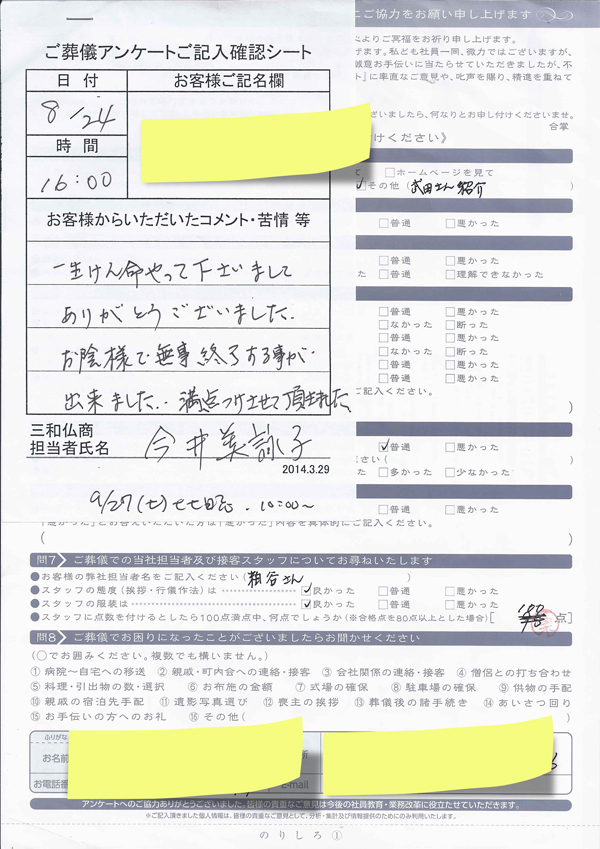 ご葬儀アンケートご記入確認シート
日 付
お客様ご記名欄
8/24
時 間
16:00
お客様からいただいたコメント・苦情 等
一生けん命やって下さいまして
ありがとうございました.
お陰様で無事終了する事が
出来ました.. 満点つけさせて頂きました
三和仏商
担当者氏名
今井美詠子
2014.3.29
9/27(土)七七日忌. 10:00〜
にご協力をお願い申し上げます
よりご冥福をお祈り申し上げます。
げます。私ども社員一同、微力ではございますが、
誠意お手伝いに当たらせていただきましたが、不
ト』に率直なご意見や、叱声を賜り、精進を重ねて
ございましたら、何なりとお申し付けくださいませ。
合掌
付けください》
て □ホームページを見て
その他( 武田さん紹介
□普通 □悪かった
□普通 □悪かった
た □普通 □理解できなかった
□普通 □悪かった
□なかった □断った
□普通 □悪かった
□なかった □断った
□普通 □悪かった
□普通 □悪かった
ご記入ください。
)
☑普通 □悪かった
ださい( )
た □多かった □少なかった
□普通 □悪かった
「悪かった」とお答えいただいた方は「悪かった」内容を具体的にご記入ください。
( )
問7 ご葬儀での当社担当者及び接客スタッフについてお尋ねいたします
●お客様の弊社担当者名をご記入ください( 粕谷さん )
●スタッフの態度(挨拶・行儀作法)は ☑良かった □普通 □悪かった
●スタッフの服装は ☑良かった □普通 □悪かった
●スタッフに点数を付けるとしたら100点満点中、何点でしょうか(※合格点を80点以上とした場合)[ 100 点]
問8 ご葬儀でお困りになったことがございましたらお聞かせください
(○でお囲みください。複数でも構いません。)
①病院〜自宅への移送 ②親戚・町内会への連絡・接客 ③会社関係の連絡・接客 ④僧侶との打ち合わせ
⑤料理・引出物の数・選択 ⑥お布施の金額 ⑦式場の確保 ⑧駐車場の確保 ⑨供物の手配
⑩親戚の宿泊先手配 ⑪遺影写真選び ⑫喪主の挨拶 ⑬葬儀後の諸手続き ⑭あいさつ回り
⑮お手伝いの方へのお礼 ⑯その他( )
ふりがな
お名前
所
お電話番
E-mail
アンケートへのご協力ありがとうございました。皆様の貴重なご意見は今後の社員教育・業務改革に役立たせていただきます。
※ご記入頂きました個人情報は、皆様の貴重なご意見として、分析・集計及び情報提供のためにのみ利用いたします。
のりしろ①